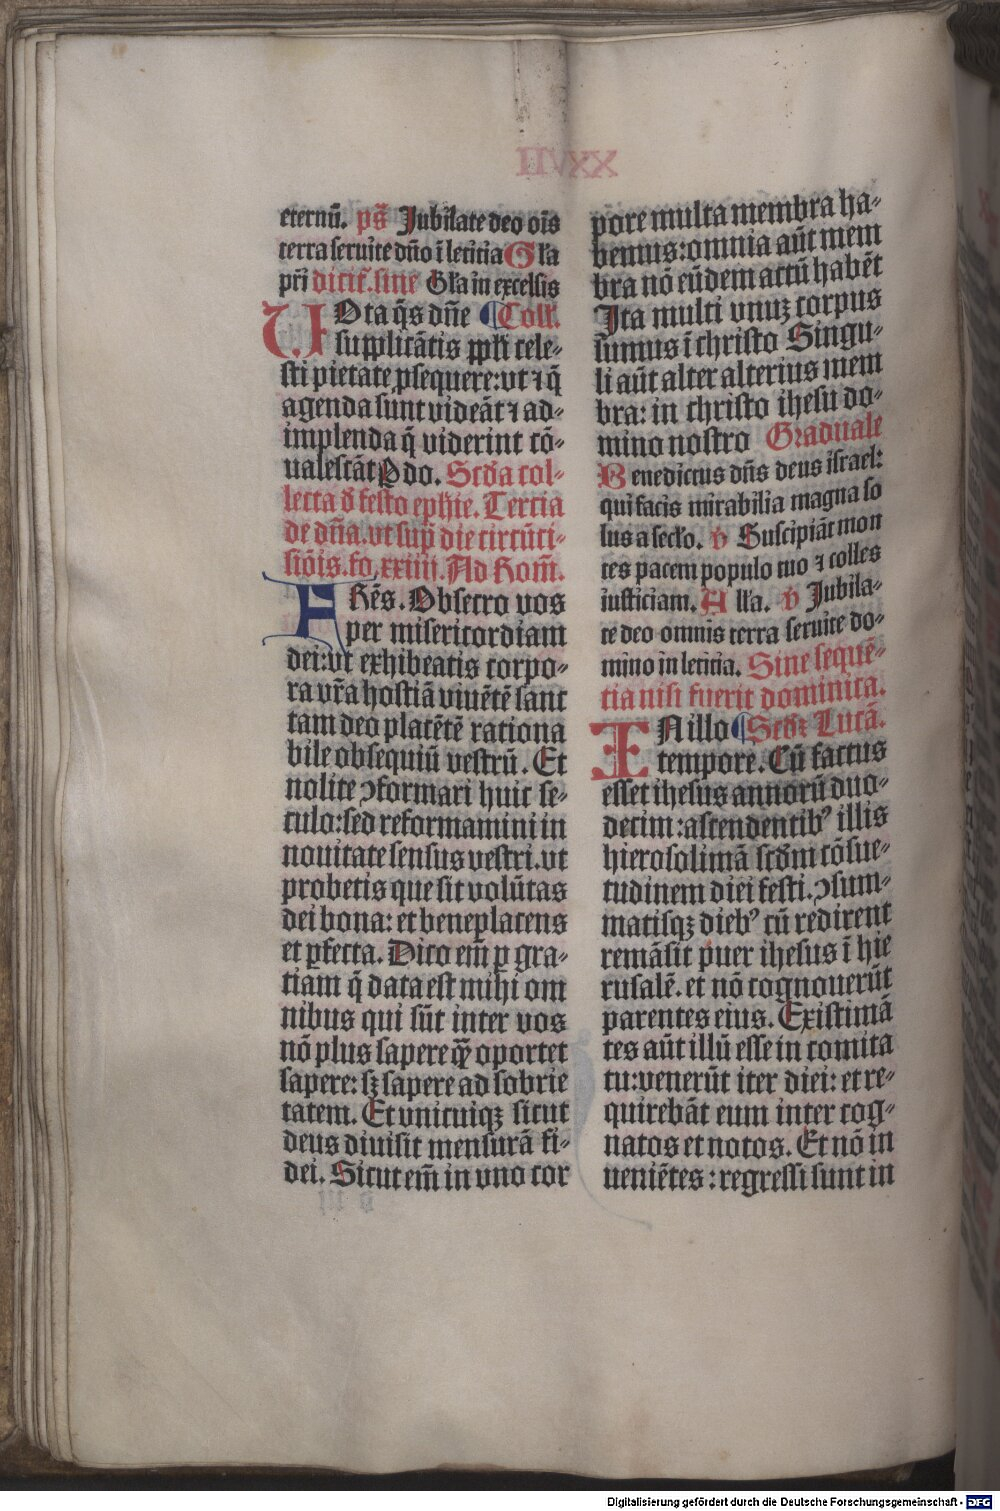 eternū. ps̄ Jubilate deo oīs
terra seruite dn̄o ī leticia Gl̄a
pr̄i dicit᷑.sine Gl̄a in excelsis
VOta q̄s dn̄e ¶Coll.
supplicātis ppl̄i cele⸗
sti pietate ꝓsequere:vt ⁊ q̄
agenda sunt videāt ⁊ ad⸗
implenda q̄ viderint cō⸗
ualescāt P do. Scd̄a col⸗
lecta d̄ festo eph̄ie. Tercia
de dn̄a.vt sup̄ die circūci⸗
siōis.fo.xxiiij.Ad Rom̄.
FRēs. Obsecro vos
per misericordiam
dei:vt exhibeatis corpo⸗
ra vr̄a hostiā viuētē sanc
tam deo placētē rationa
bile obsequiū vestrū. Et
nolite ꝯformari huic se⸗
culo:sed reformamini in
nouitate sensus vestri.vt
probetis que sit volūtas
dei bona: et beneplacens
et ꝑfecta. Dico em̄ ꝑ gra⸗
tiam q̄ data est mihi om
nibus qui sūt inter vos
nō plus sapere qꝫ̄ oportet
sapere: sꝫ sapere ad sobrie
tatem. Et vnicuiqꝫ sicut
deus diuisit mensurā fi⸗
dei. Sicut em̄ in vno cor
pore multa membra ha⸗
bemus:omnia aūt mem
bra nō eūdem actū habēt
Ita multi vnuꝫ corpus
sumus ī christo Singu⸗
li aūt alter alterius mem
bra: in christo ihesu do⸗
mino nostro Graduale
Benedictus dn̄s deus israel:
qui facis mirabilia magna so
lus a secl̄o. v Suscipiāt mon
tes pacem populo tuo ⁊ colles
iusticiam. All̄a. v Jubila⸗
te deo omnis terra seruite do⸗
mino in leticia. Sine sequē⸗
tia nisi fuerit dominica.
IN illo ¶Scdꝫ Lucā.
tempore. Cū factus
esset ihesus annorū duo⸗
decim:ascendentibꝰ illis
hierosolimā scd̄m cōsue⸗
tudinem diei festi.ꝯsum⸗
matisqꝫ diebꝰ cū redirent
remāsit puer ihesus ī hie
rusalē.et nō cognouerūt
parentes eius. Existimā
tes aūt illū esse in comita
tu:venerūt iter diei: et re⸗
quirebāt eum inter cog⸗
natos et notos. Et nō in
ueniētes : regressi sunt in
Digitalisierung gefördert durch die Deutsche Forschungsgemeinschaft - DFG